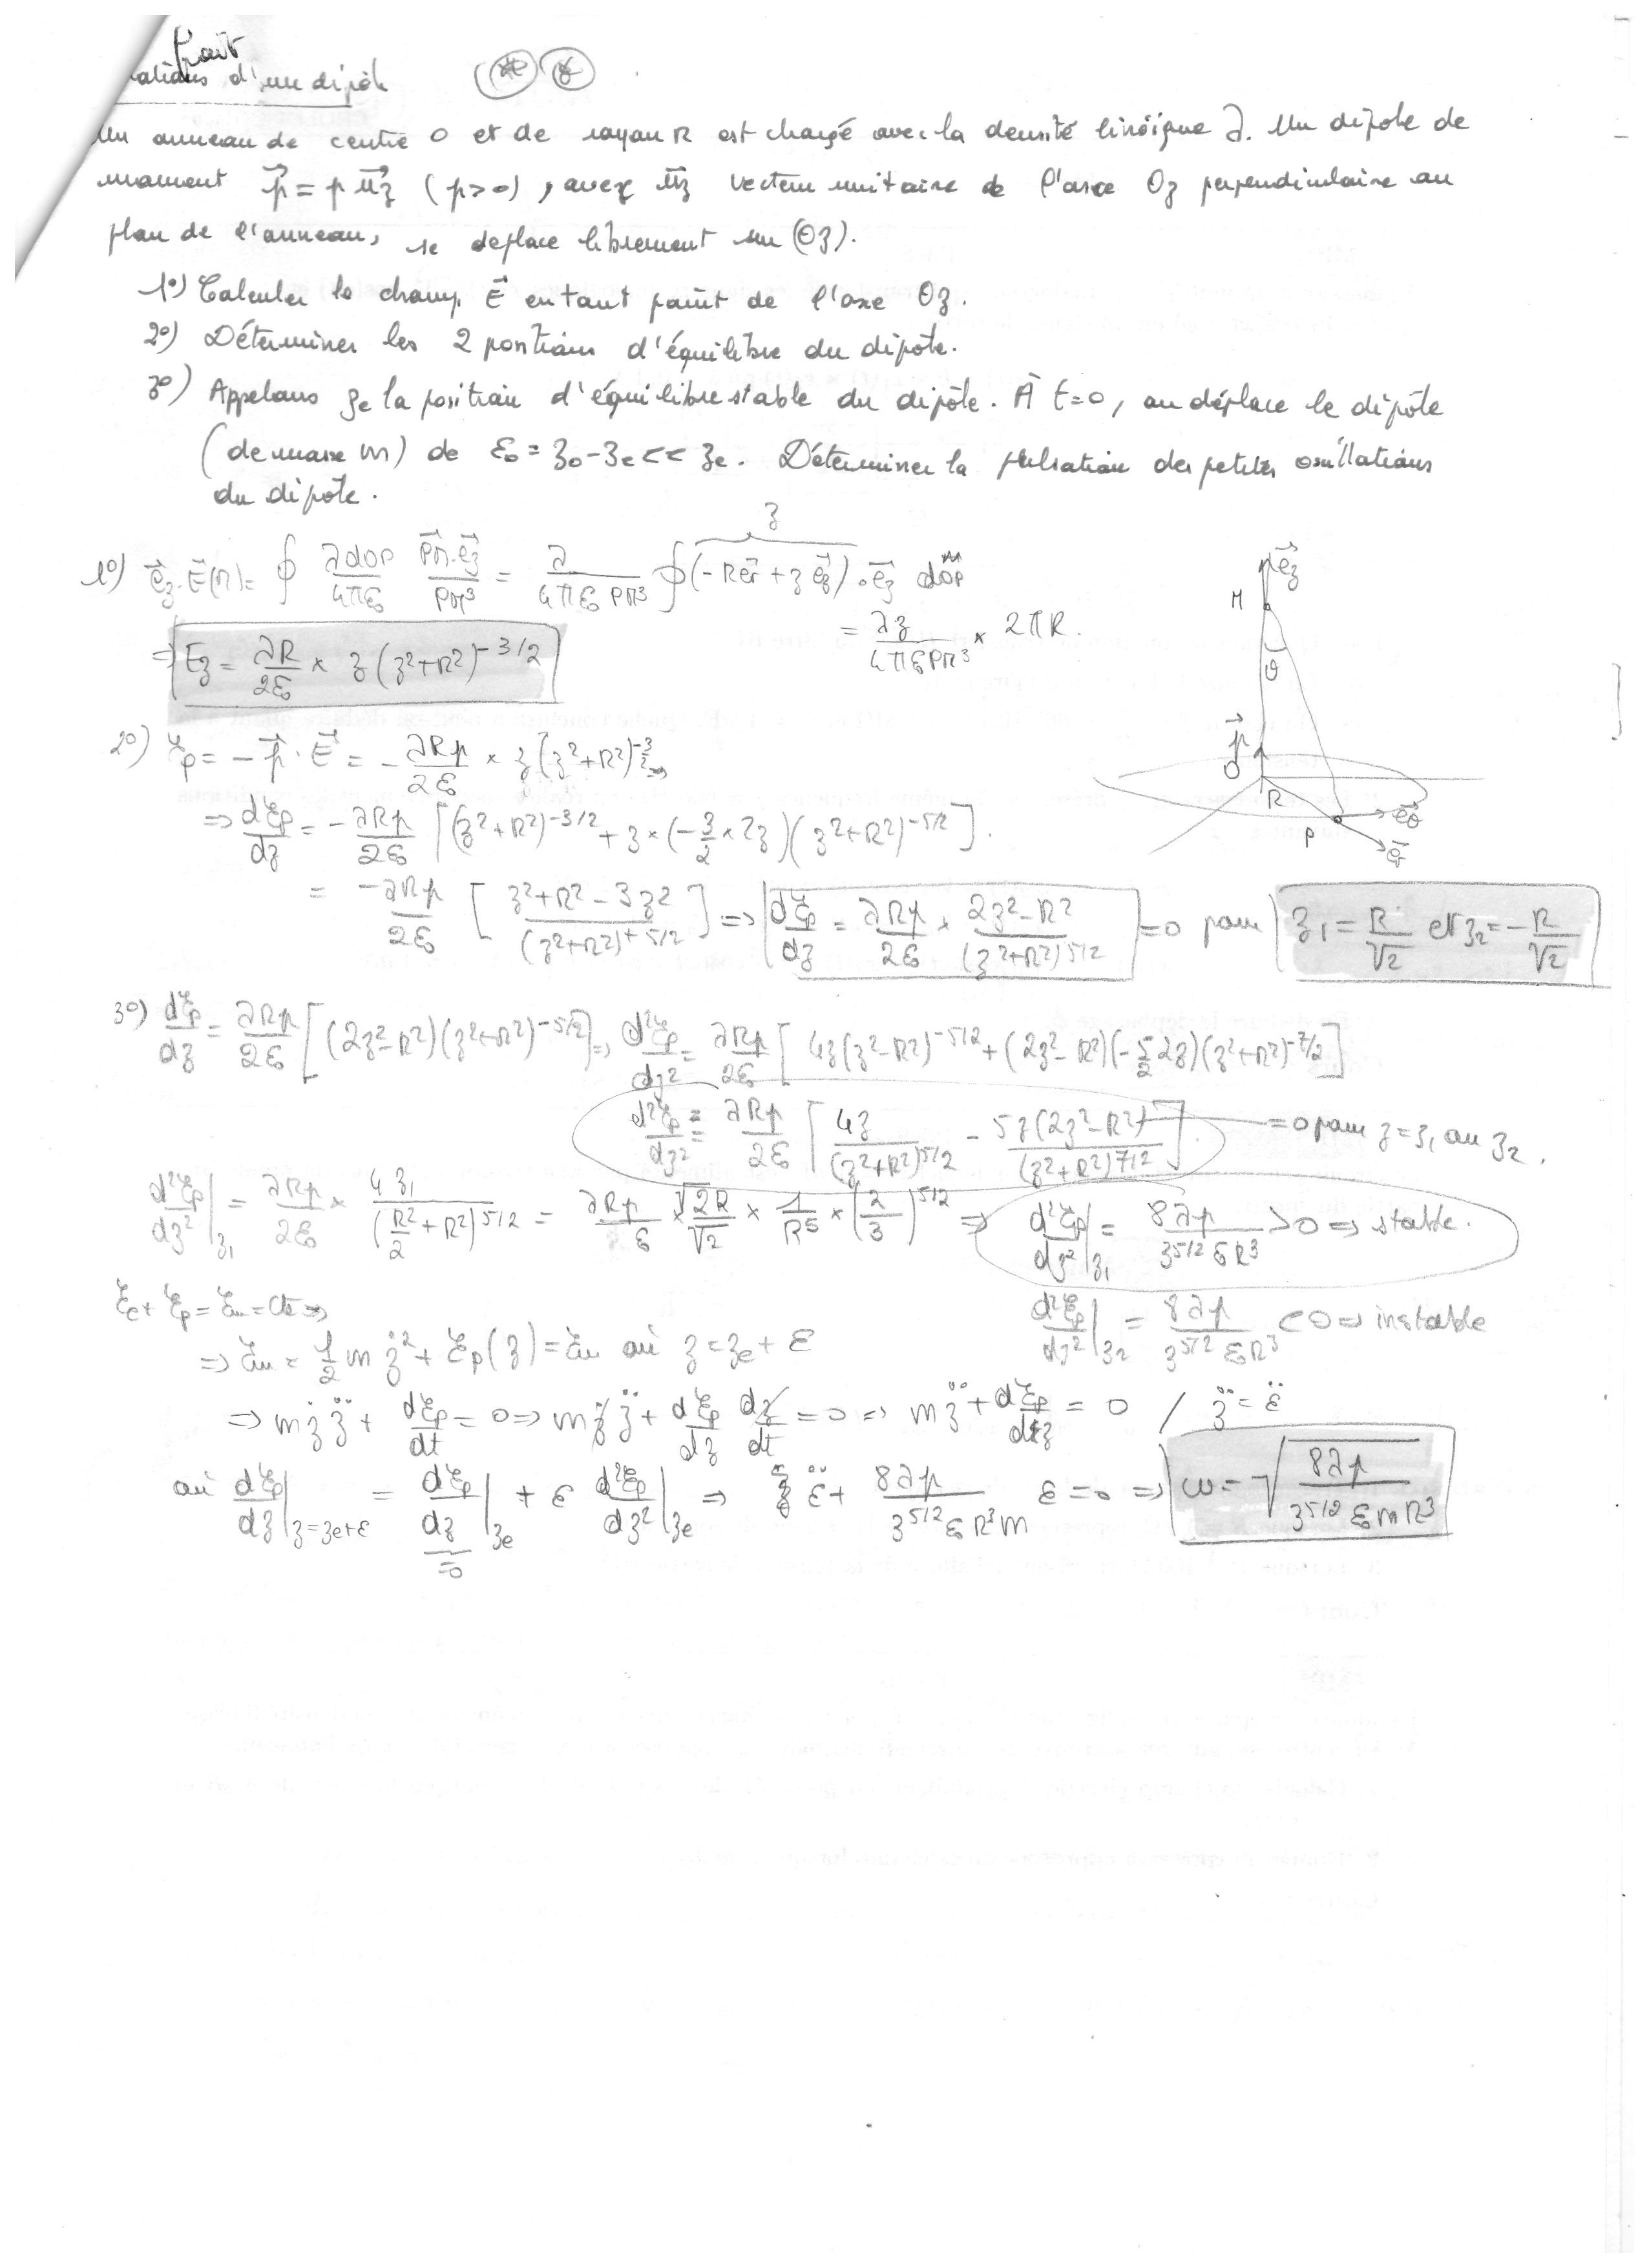 Fait
ations d'un dipôle
Un anneau de centre O et de rayon R est chargé avec la densité linéique λ. Un dipole de
moment p⃗ = p u⃗z (p>0), avec u⃗z vecteur unitaire de l'axe Oz perpendiculaire au
plan de l'anneau, se deplace librement sur (Oz).
1°) Calculer le champ E⃗ en tout point de l'axe Oz.
2°) Déterminer les 2 positions d'équilibre du dipôle.
3°) Appelons ze la position d'équilibre stable du dipôle. À t=0, on déplace le dipôle
(de masse m) de ε₀ = z₀-ze << ze. Déterminer la pulsation des petites oscillations
du dipôle.
1°) e⃗z.E⃗(M) = ∮ λdOP/4πε₀ PM⃗.e⃗z/PM³ = λ/4πε₀PM³ ∮(-Re⃗r + z e⃗z).e⃗z dOP
z
= λz/4πε₀PM³ × 2πR.
⇒ Ez = λR/2ε₀ × z(z²+R²)^-3/2
e⃗z
M
θ
p⃗
O
R
P
e⃗θ
e⃗r
2°) Ep = -p⃗.E⃗ = -λRp/2ε₀ × z(z²+R²)^-3/2 ⇒
⇒ dEp/dz = -λRp/2ε₀ [(z²+R²)^-3/2 + z×(-3/2×2z)(z²+R²)^-5/2].
= -λRp/2ε₀ [z²+R²-3z²/(z²+R²)^+5/2] ⇒ dEp/dz = λRp/2ε₀ × 2z²-R²/(z²+R²)^5/2 =0 pour z₁ = R/√2 et z₂ = -R/√2
3°) dEp/dz = λRp/2ε₀ [(2z²-R²)(z²+R²)^-5/2] ⇒ d²Ep/dz² = λRp/2ε₀ [4z(z²-R²)^-5/2 + (2z²-R²)(-5/2 2z)(z²+R²)^-7/2]
d²Ep/dz² = λRp/2ε₀ [4z/(z²+R²)^5/2 - 5z(2z²-R²)/(z²+R²)^7/2] =0 pour z=z₁ ou z₂.
d²Ep/dz²|z₁ = λRp/2ε₀ × 4z₁/(R²/2+R²)^5/2 = λRp/ε₀ × √2R/√2 × 1/R⁵ × (2/3)^5/2 ⇒ d²Ep/dz²|z₁ = 8λp/3^5/2 ε₀R³ >0 ⇒ stable.
Ec + Ep = Em = Cte ⇒ d²Ep/dz²|z₂ = 8λp/3^5/2 ε₀R³ <0 ⇒ instable
⇒ Em = 1/2 m ż² + Ep(z) = Em où z = ze + ε
⇒ m ż z̈ + dEp/dt = 0 ⇒ m ż z̈ + dEp/dz dz/dt = 0 ⇒ m z̈ + dEp/dz = 0 / z̈ = ε̈
où dEp/dz|z=ze+ε = dEp/dz|ze + ε d²Ep/dz²|ze ⇒ ε̈ + 8λp/3^5/2 ε₀R³m ε = 0 ⇒ ω = √8λp/3^5/2 ε₀mR³
=0